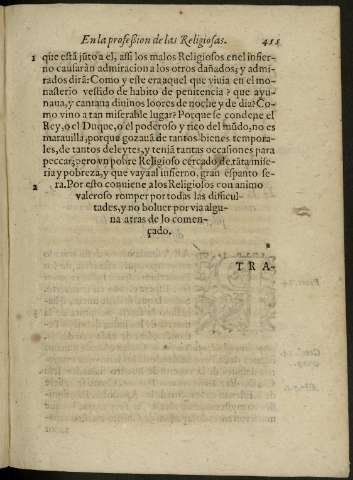 En la profession de las Religiosas. 415
1 que está jũto a el, assi los malos Religiosos en el infier-
no causarán admiracion a los otros dañados; y admi-
rados dirã: Como y este era aquel que viuia en el mo-
nasterio vestido de habito de penitencia? que ayu-
naua, y cantaua diuinos loores de noche y de dia? Co-
mo vino a tan miserable lugar? Porque se condene el
Rey, o el Duque, o el poderoso y rico del mũdo, no es
marauilla, porque gozaua de tantos bienes tempora-
les, de tantos deleytes, y tenia tantas occasiones para
peccar; pero vn pobre Religioso cercado de tãta mise-
ria y pobreza, y que vaya al infierno, gran espanto se-
2 ra. Por esto conuiene a los Religiosos con animo
valeroso romper por todas las dificul-
tades, y no boluer por via algu-
na atras de lo comen-
çado.
TRA-